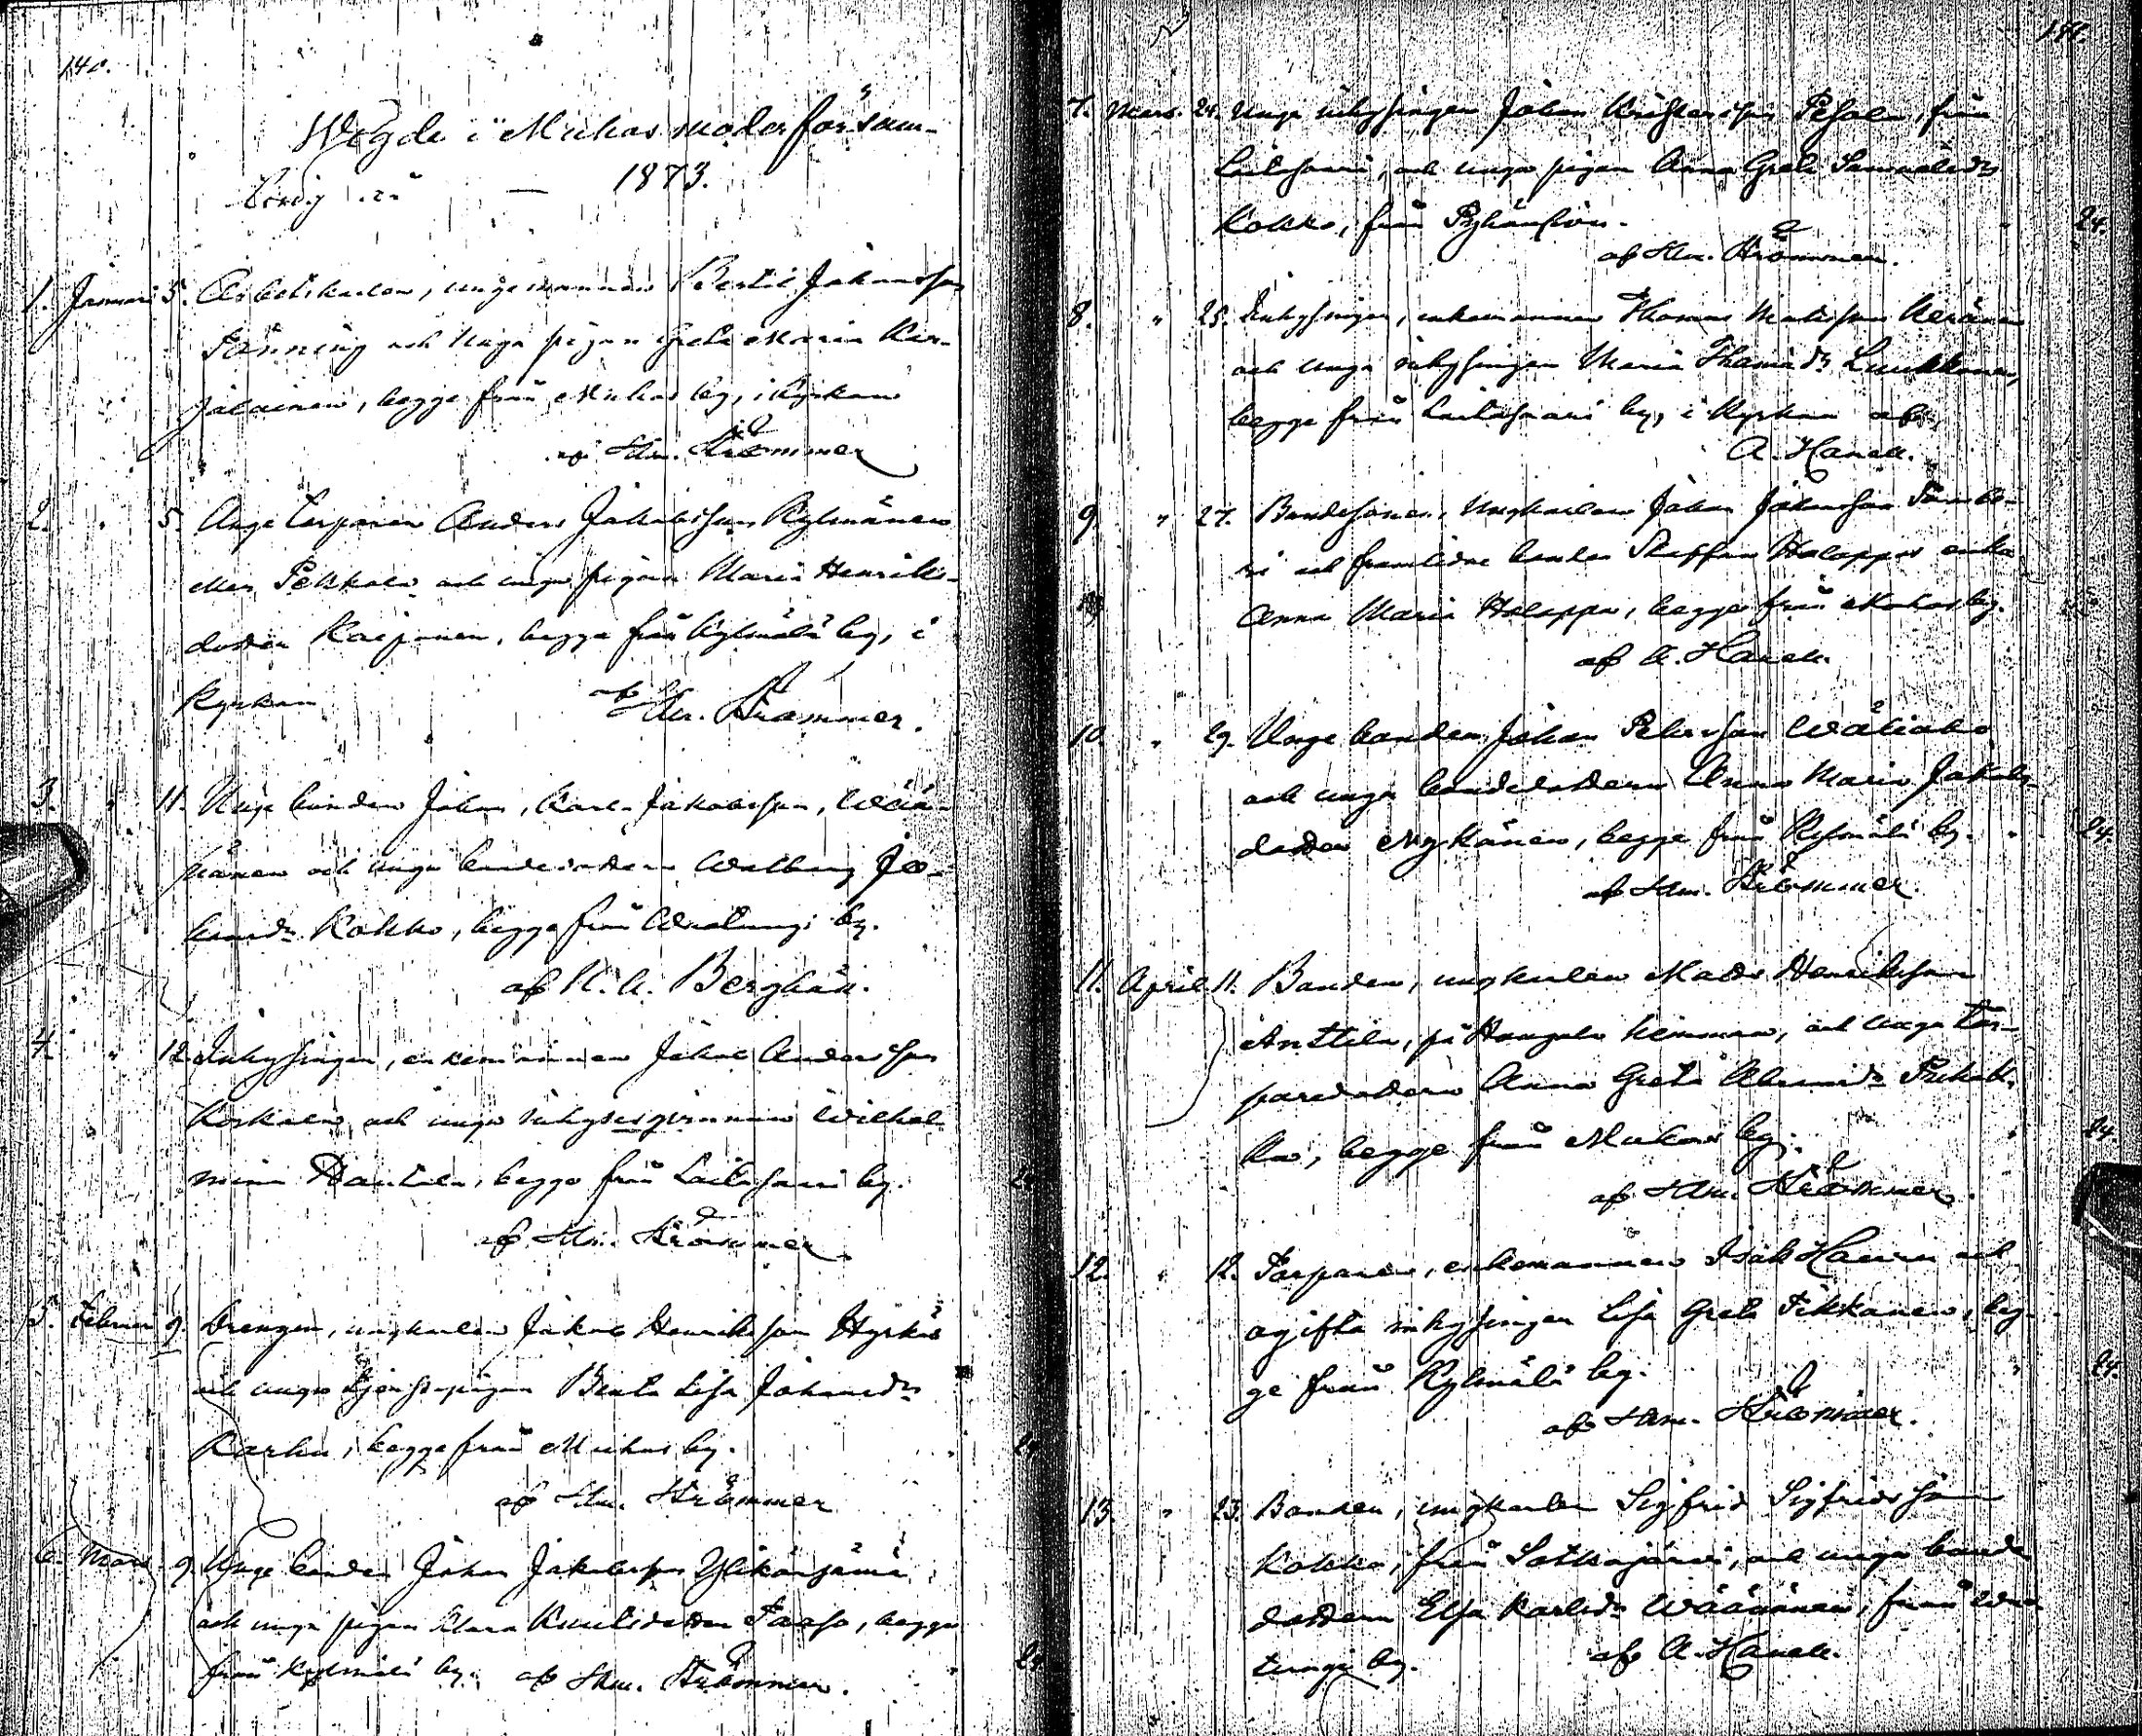 140.
Wigde i Muhos moderförsam-
ling år — 1873.
1. Januari 5. Arbetskarlen, ungemannen Bertil Johansson
Fänning och unga pigan Greta Maria Kar-
jalainen, begge från Muhos by, i kyrkan
af Hm. Strömmer
2. " 5. Unge torparen Anders Jakobsson Kylmänen
eller Pekkala och unga pigan Maria Henriks-
dotter Karjonen, begge från Kylmälä by, i
kyrkan af Hm. Strömmer.
3. " 11. Unge bonden Johan, Karl Jakobsson,
pänen och unga bondedottern Walborg Jo-
hansdr Kokko, begge från by.
af K. A. Berghäll.
4. " 12. Inhysingen, enkemannen Jakob Andersson
Koskela, och unga inhysesqvinnan Wilhel-
mina Hautala, begge från Laitasaari by. 24
af Hm. Strömmer
5. Februari 9. Drengen, ungkarlen Jakob Henriksson Hyrkäs
och unga tjenstepigan Beata Lisa Johansdr
Karhu, begge från Muhos by. " 24
af Hm. Strömmer
6. Mars 9. Unge bonden Johan Jakobsson Ylikärjämä
och unga pigan Klara Knutsdotter Paaso, begge
från Kylmälä by. af Hm. Strömmer. " 24
141.
7. Mars. 24. Unge inhysingen Johan Kristersson Pesola, från
Laitasaari, och unga pigan Anna Greta Samuelsdr
Kokko, från Pyhänsivu. " 24.
af Hm. Strömmer.
8. " 25. Inhysingen, enkemannen Thomas Matsson Keränen
och unga inhysingen Maria Thomadr Luukkonen,
begge från Laitasaari by, i kyrkan af
A. Hanell.
9. " 27. Bondesonen, ungkarlen Johan Johansson
ri och framlidne bonden Staffan Holappas enka
Anna Maria Holappa, begge från Muhos by.
af A. Hanell.
10. " 29. Unge bonden Johan Petersson Wäliaho
och unga bondedottern Anna Maria Jakobs-
dotter Nykänen, begge från Kylmälä by. " 24.
af Hm. Strömmer.
11. April. 11. Bonden, ungkarlen Mats Henriksson
Anttila, på Hangala hemman, och unga tor-
paredottern Anna Greta Abramsdr
ka, begge från Muhos by. " 24.
af Hm. Strömmer.
12. " 12. Torparen, enkemannen Isak Hauru och
ogifta inhysingen Lisa Greta Tikkanen, beg-
ge från Kylmälä by. " 24.
af Hm. Strömmer.
13 " 23. Bonden, ungkarlen Sigfrid Sigfridsson
Kokko, från Sotkajärvi, och unga bonde
dottern Elsa Karlsdr Wäänänen, från
tunge by. af A. Hanell.